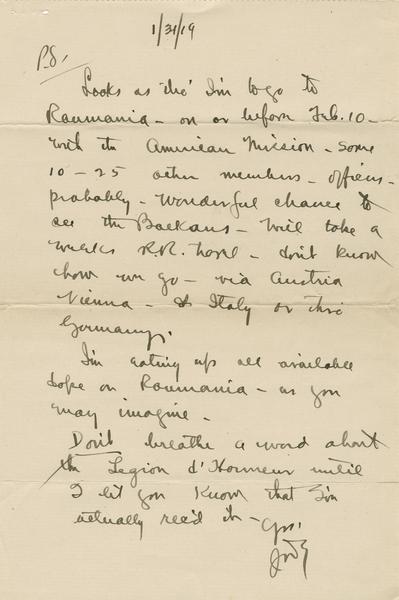 1/31/19
P.S.
Looks as tho' I'm to go to
Roumania - on or before Feb. 10 -
with the American Mission - some
10 - 25 other members - officers -
probably - Wonderful chance to
see the Balkans - Will take a
weeks R.R. travel - don't know
how we go - via Austria
Vienna - Italy or thro
Germany.
I'm eating up all available
dope on Roumania - as you
may imagine -
Don't breathe a word about
the Legion d'Honneur until
I let you know that I've
actually rec'd it -